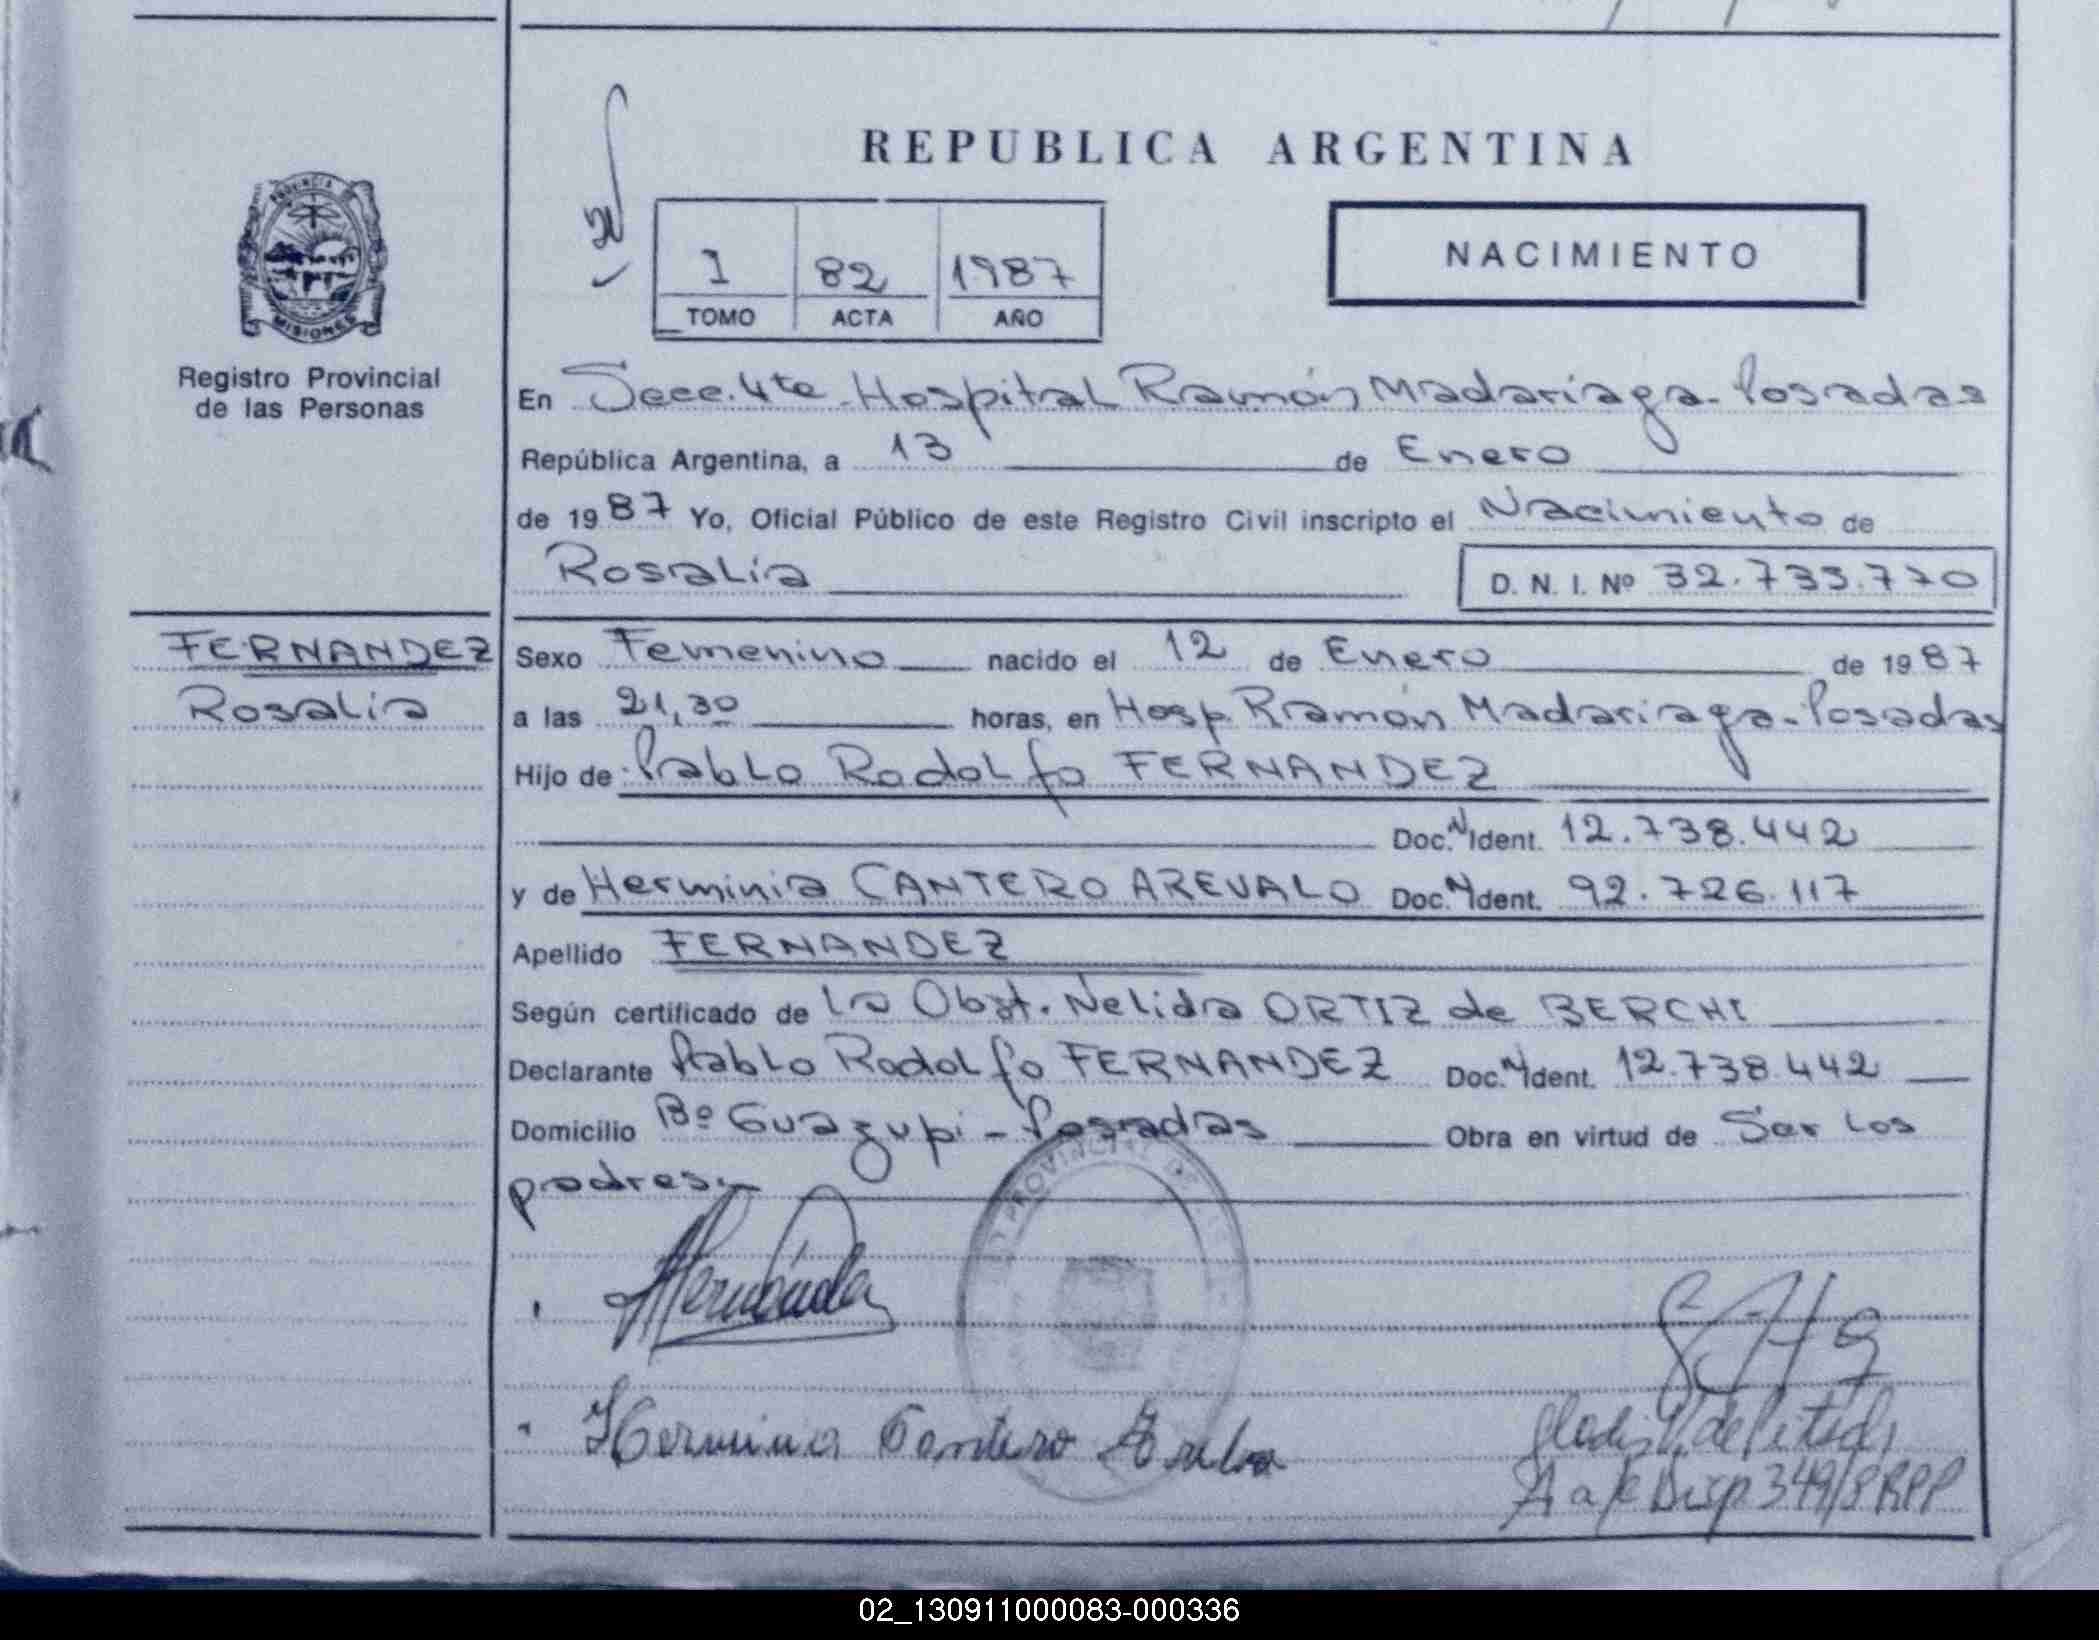 REPUBLICA ARGENTINA
1 82 1987
TOMO ACTA AÑO
NACIMIENTO
PROVINCIA DE
MISIONES
Registro Provincial
de las Personas
En Secc. 4ta. Hospital Ramón Madariaga - Posadas
República Argentina, a 13 de Enero
de 1987 Yo, Oficial Público de este Registro Civil inscripto el Nacimiento de
Rosalía
D. N. I. Nº 32.733.770
FERNANDEZ
Rosalía
Sexo Femenino nacido el 12 de Enero de 1987
a las 21,30 horas, en Hosp. Ramón Madariaga - Posadas
Hijo de Pablo Rodolfo FERNANDEZ
Doc. N Ident. 12.738.442
y de Herminia CANTERO AREVALO Doc. N Ident. 92.726.117
Apellido FERNANDEZ
Según certificado de la Obst. Nelida ORTIZ de BERCHI
Declarante Pablo Rodolfo FERNANDEZ Doc. N Ident. 12.738.442
Domicilio Bº Guazupi - Posadas Obra en virtud de Ser los
padres.
PROVINCIAL DE
Fernández
Herminia Cantero
02_130911000083-000336